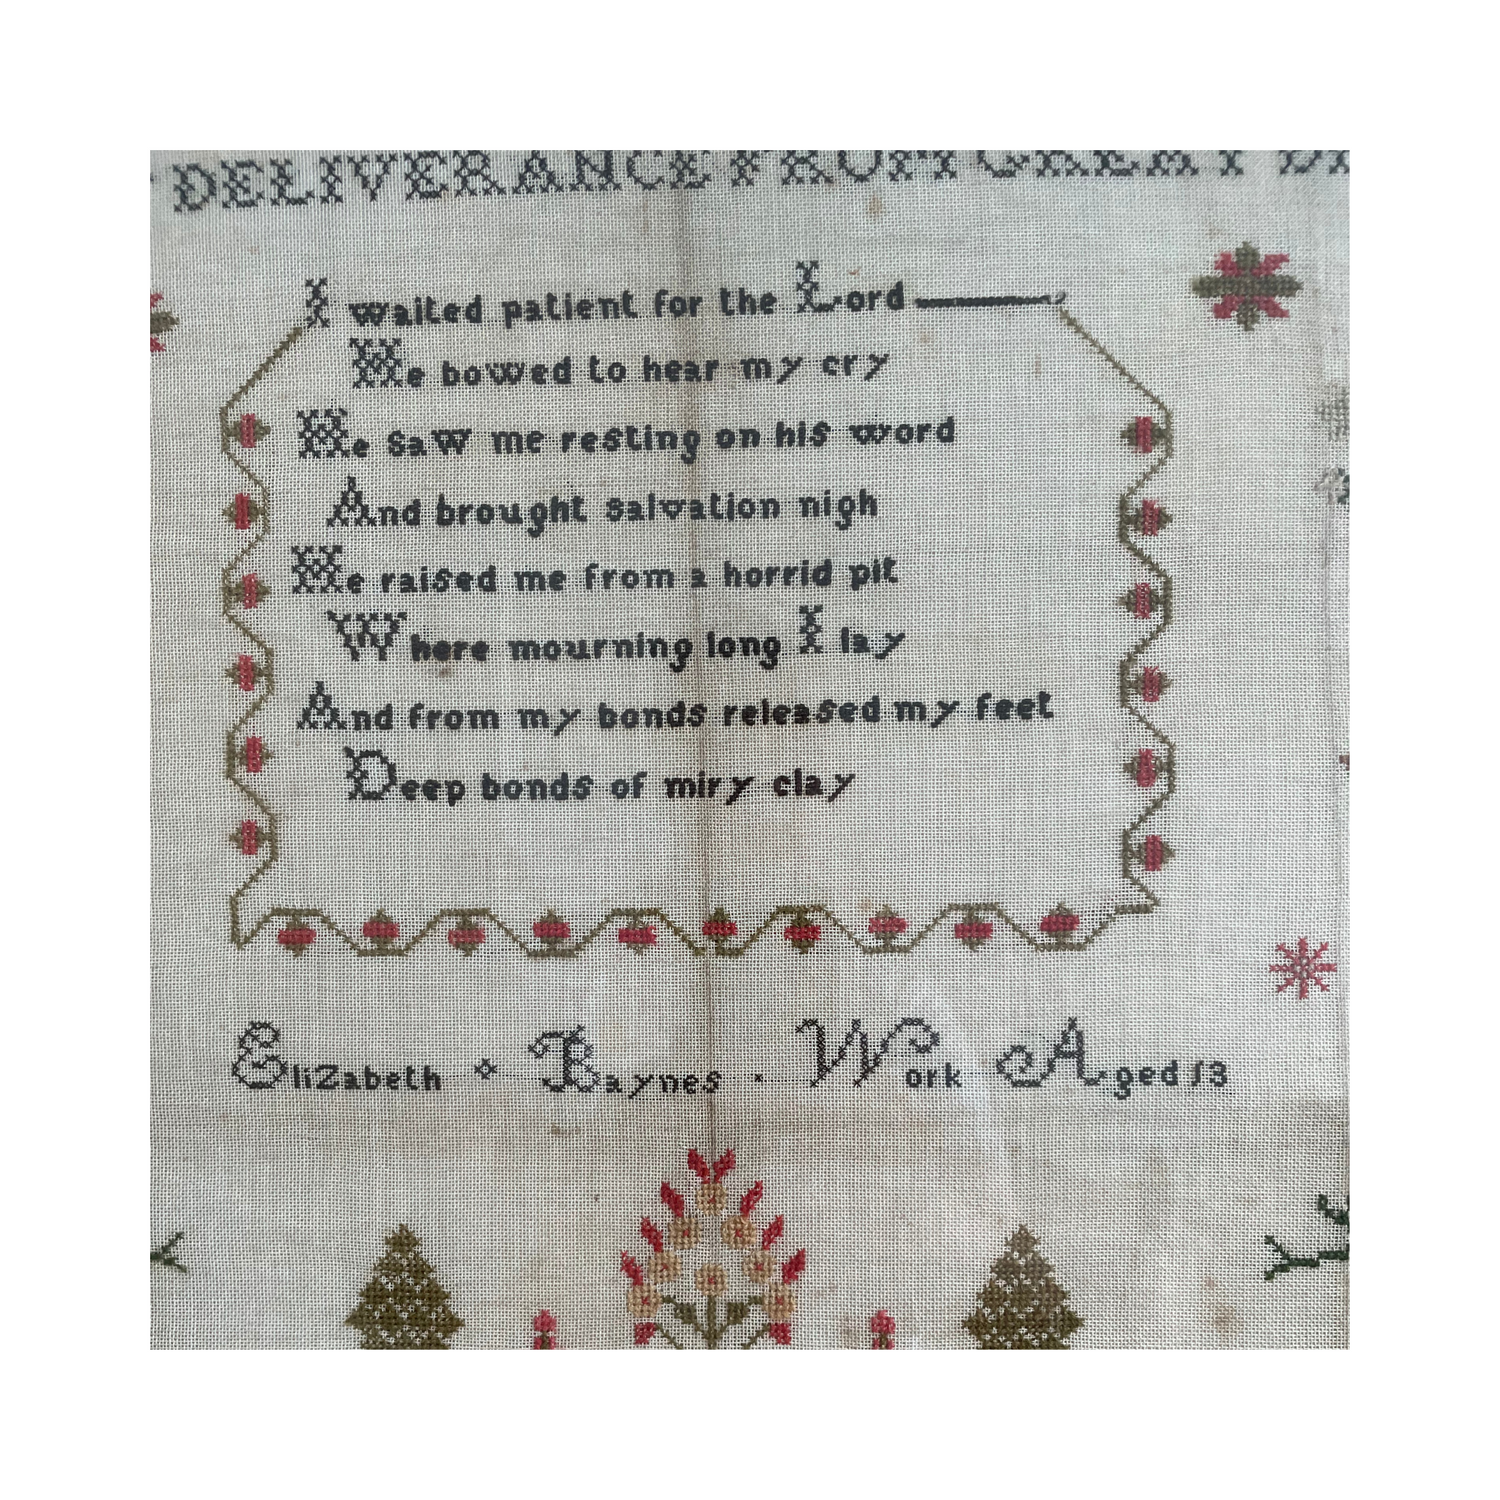 DELIVERANCE FROM GREAT
I waited patient for the Lord
He bowed to hear my cry
He saw me resting on his word
And brought salvation nigh
He raised me from a horrid pit
Where mourning long I lay
And from my bonds released my feet
Deep bonds of miry clay
EliZabeth Baynes Work Aged 13